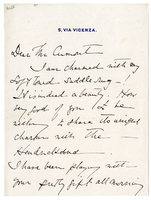 5, VIA VICENZA.
Dear Mr Cumont
I am charmed with my
gift and saddle bag -
It is indeed a beauty. How
very good of you to be
to share its unique
charm with the
I have been playing with
your pretty gift all morning